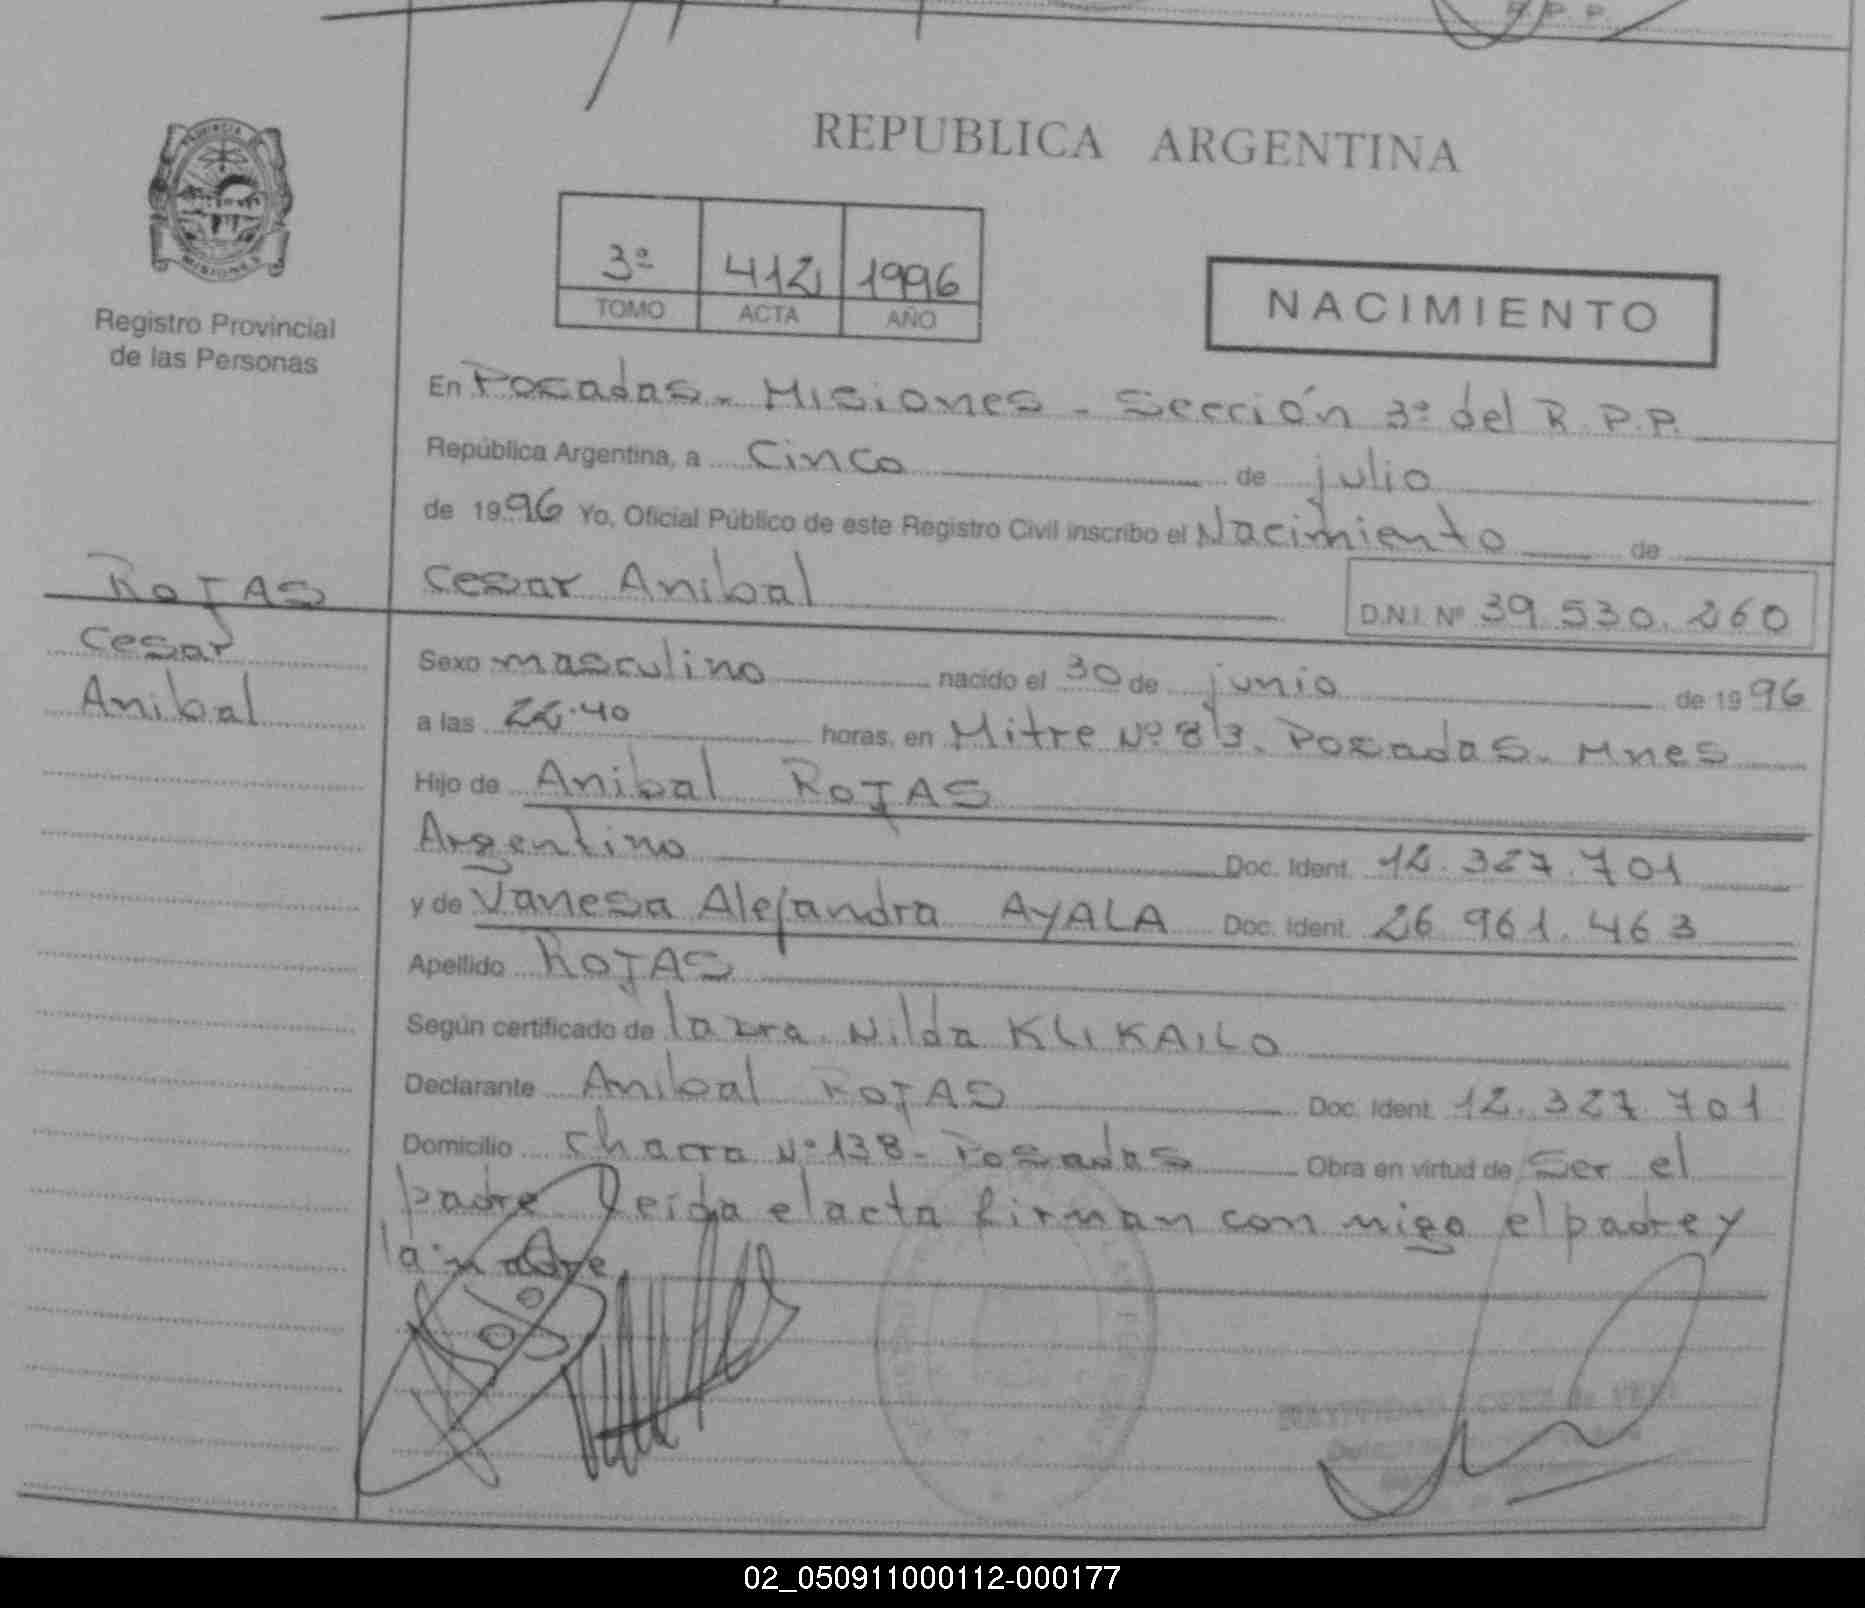 R.P.P.
PROVINCIA
MISIONES
Registro Provincial
de las Personas
REPUBLICA ARGENTINA
3º 412 1996
TOMO ACTA AÑO
NACIMIENTO
En Posadas - Misiones - Sección 3º del R.P.P.
República Argentina, a Cinco de julio
de 1996 Yo, Oficial Público de este Registro Civil inscribo el Nacimiento de
ROJAS
Cesar Anibal D.N.I. Nº 39.530.260
Cesar
Anibal
Sexo masculino nacido el 30 de junio de 1996
a las 22.40 horas, en Mitre Nº 813. Posadas. Mnes
Hijo de Anibal ROJAS
Argentino Doc. Ident. 12.327.701
y de Vanesa Alejandra AYALA Doc. Ident. 26.961.463
Apellido ROJAS
Según certificado de la Nilda KLIKAILO
Declarante Anibal ROJAS Doc. Ident. 12.327.701
Domicilio Chacra Nº 138 - Posadas Obra en virtud de Ser el
padre. Leida el acta firman con migo el padre y
la madre
02_050911000112-000177